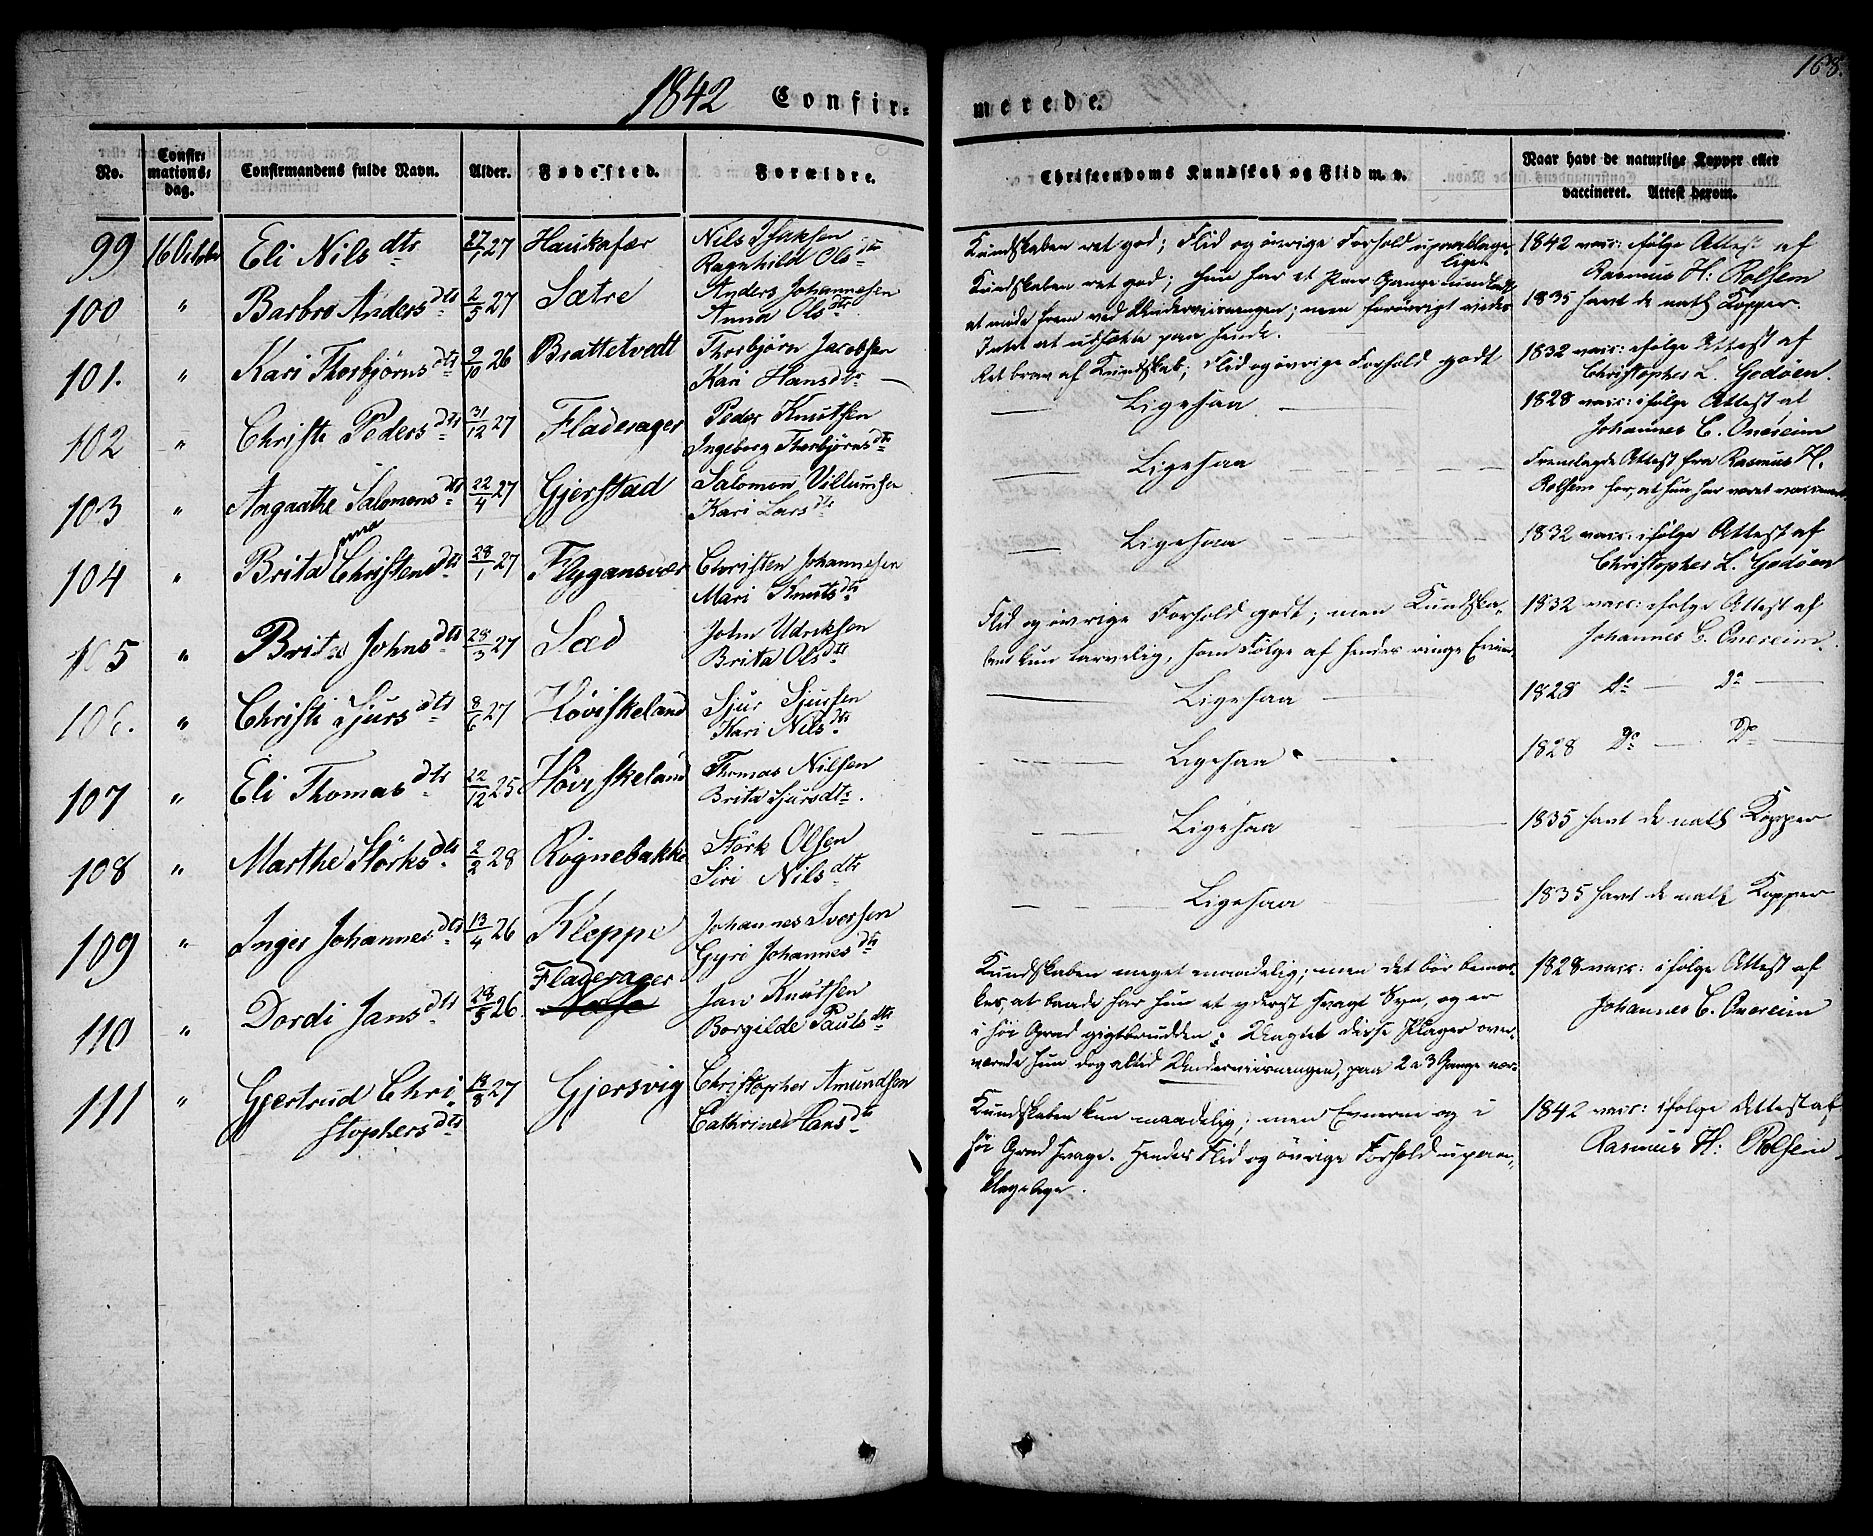 168.
1842 Confir= merede.
No. Confir= mations= dag. Confirmandens fulde Navn. Alder. Fødested. Forældre. Christendoms Kundskab og Flid m. v. Naar havt de naturlige Kopper eller vaccineret. Attest derom.
99 16 Octobr Eli Nils dtr 27/1 27 Haukafær Nils Isaksen
Ragnhild Ols dtr
Kundskaben ret god; Flid og øvrige Forhold upaaklage-
ligt
1842 vacc: ifølge Attest af
Rasmus H: Rolsem
100 " Barbro Anders dtr 2/5 27 Sætre Anders Johannesen
Anna Ols dtr
Kundskaben ret god; hun har et Par Gange undladt
at møde frem ved Underviisningen; men forøvrigt vides
Intet at udsætte paa hende.
1835 havt de natl Kopper.
101. " Kari Thorbjørns dtr 9/10 26 Brattetvedt Thorbjørn Jacobsen
Kari Hans dtr
Ret brav af Kundskab; Flid og øvrige Forhold godt
1832 vacc: ifølge Attest af
Christopher L. Godøen.
102 " Christi Peders dtr 31/12 27 Fladerager Peder Knutsen
Ingeborg Thorbjørns dtr
— Ligesaa —
1828 vacc: ifølge Attest af
Johannes C. Onereim
103 " Aagaathe Salomons dtr 22/4 27 Gjerstad Salomon Villumsen
Kari Lars dtr
— Ligesaa —
Fremlagde Attest fra Rasmus H.
Rolsem for, at hun har været vaccineret
104 " Brita Christens dtr 28/1 27 Flygansvær Christen Johannesen
Mari Knuts dtr
— Ligesaa —
1832 vacc: ifølge Attest af
Christopher L. Godøen
105 " Brita Johns dtr 28/3 27 Sæd John Udriksen
Brita Ols dtr
Flid og øvrige Forhold godt; men Kundska-
ben kun tarvelig, som Følge af hendes ringe Evner
1832 vacc: ifølge Attest af
Johannes C. Onereim.
106. " Christi Sjurs dtr 8/6 27 Høviskeland Sjur Sjursen
Kari Nils dtr
— Ligesaa —
1828 Do — Do —
107 " Eli Thomas dtr 22/12 25 Høviskeland Thomas Nilsen
Brita Sjurs dtr.
— Ligesaa —
1828 Do — Do —
108 " Marthe Störks dtr 2/2 28 Rögnebakke Störk Olsen
Siri Nils dtr
— Ligesaa —
1835 havt de natl Kopper
109 " Inger Johannes dtr 13/4 26 Kleppe Johannes Iversen
Gyri Johannes dtr
— Ligesaa —
1835 havt de natl Kopper
110 " Dordi Jans dtr 28/5 26. Fladerager Jan Knutsen
Borgilde Pauls dtr
Kundskaben meget maadelig; men det bør bemær-
kes, at baade har hun et yderst svagt Syn, og er
i høi Grad gigtbrudden; Uagtet disse Plager over-
værede hun dog altid Underviisningen, paa 2 a 3 Gange nær
1828 vacc: ifølge Attest af
Johannes C. Onereim
111 " Gjertrud Chri-
stophers dtr 13/8 27 Gjersvig Christopher Amundsen
Cathrine Hans dtr
Kundskaben kun maadelig; men Evnerne og i
høi Grad svage. Hendes Flid og øvrige Forhold upaa-
klagelige.
1842 vacc: ifølge Attest af
Rasmus H: Rolsem.